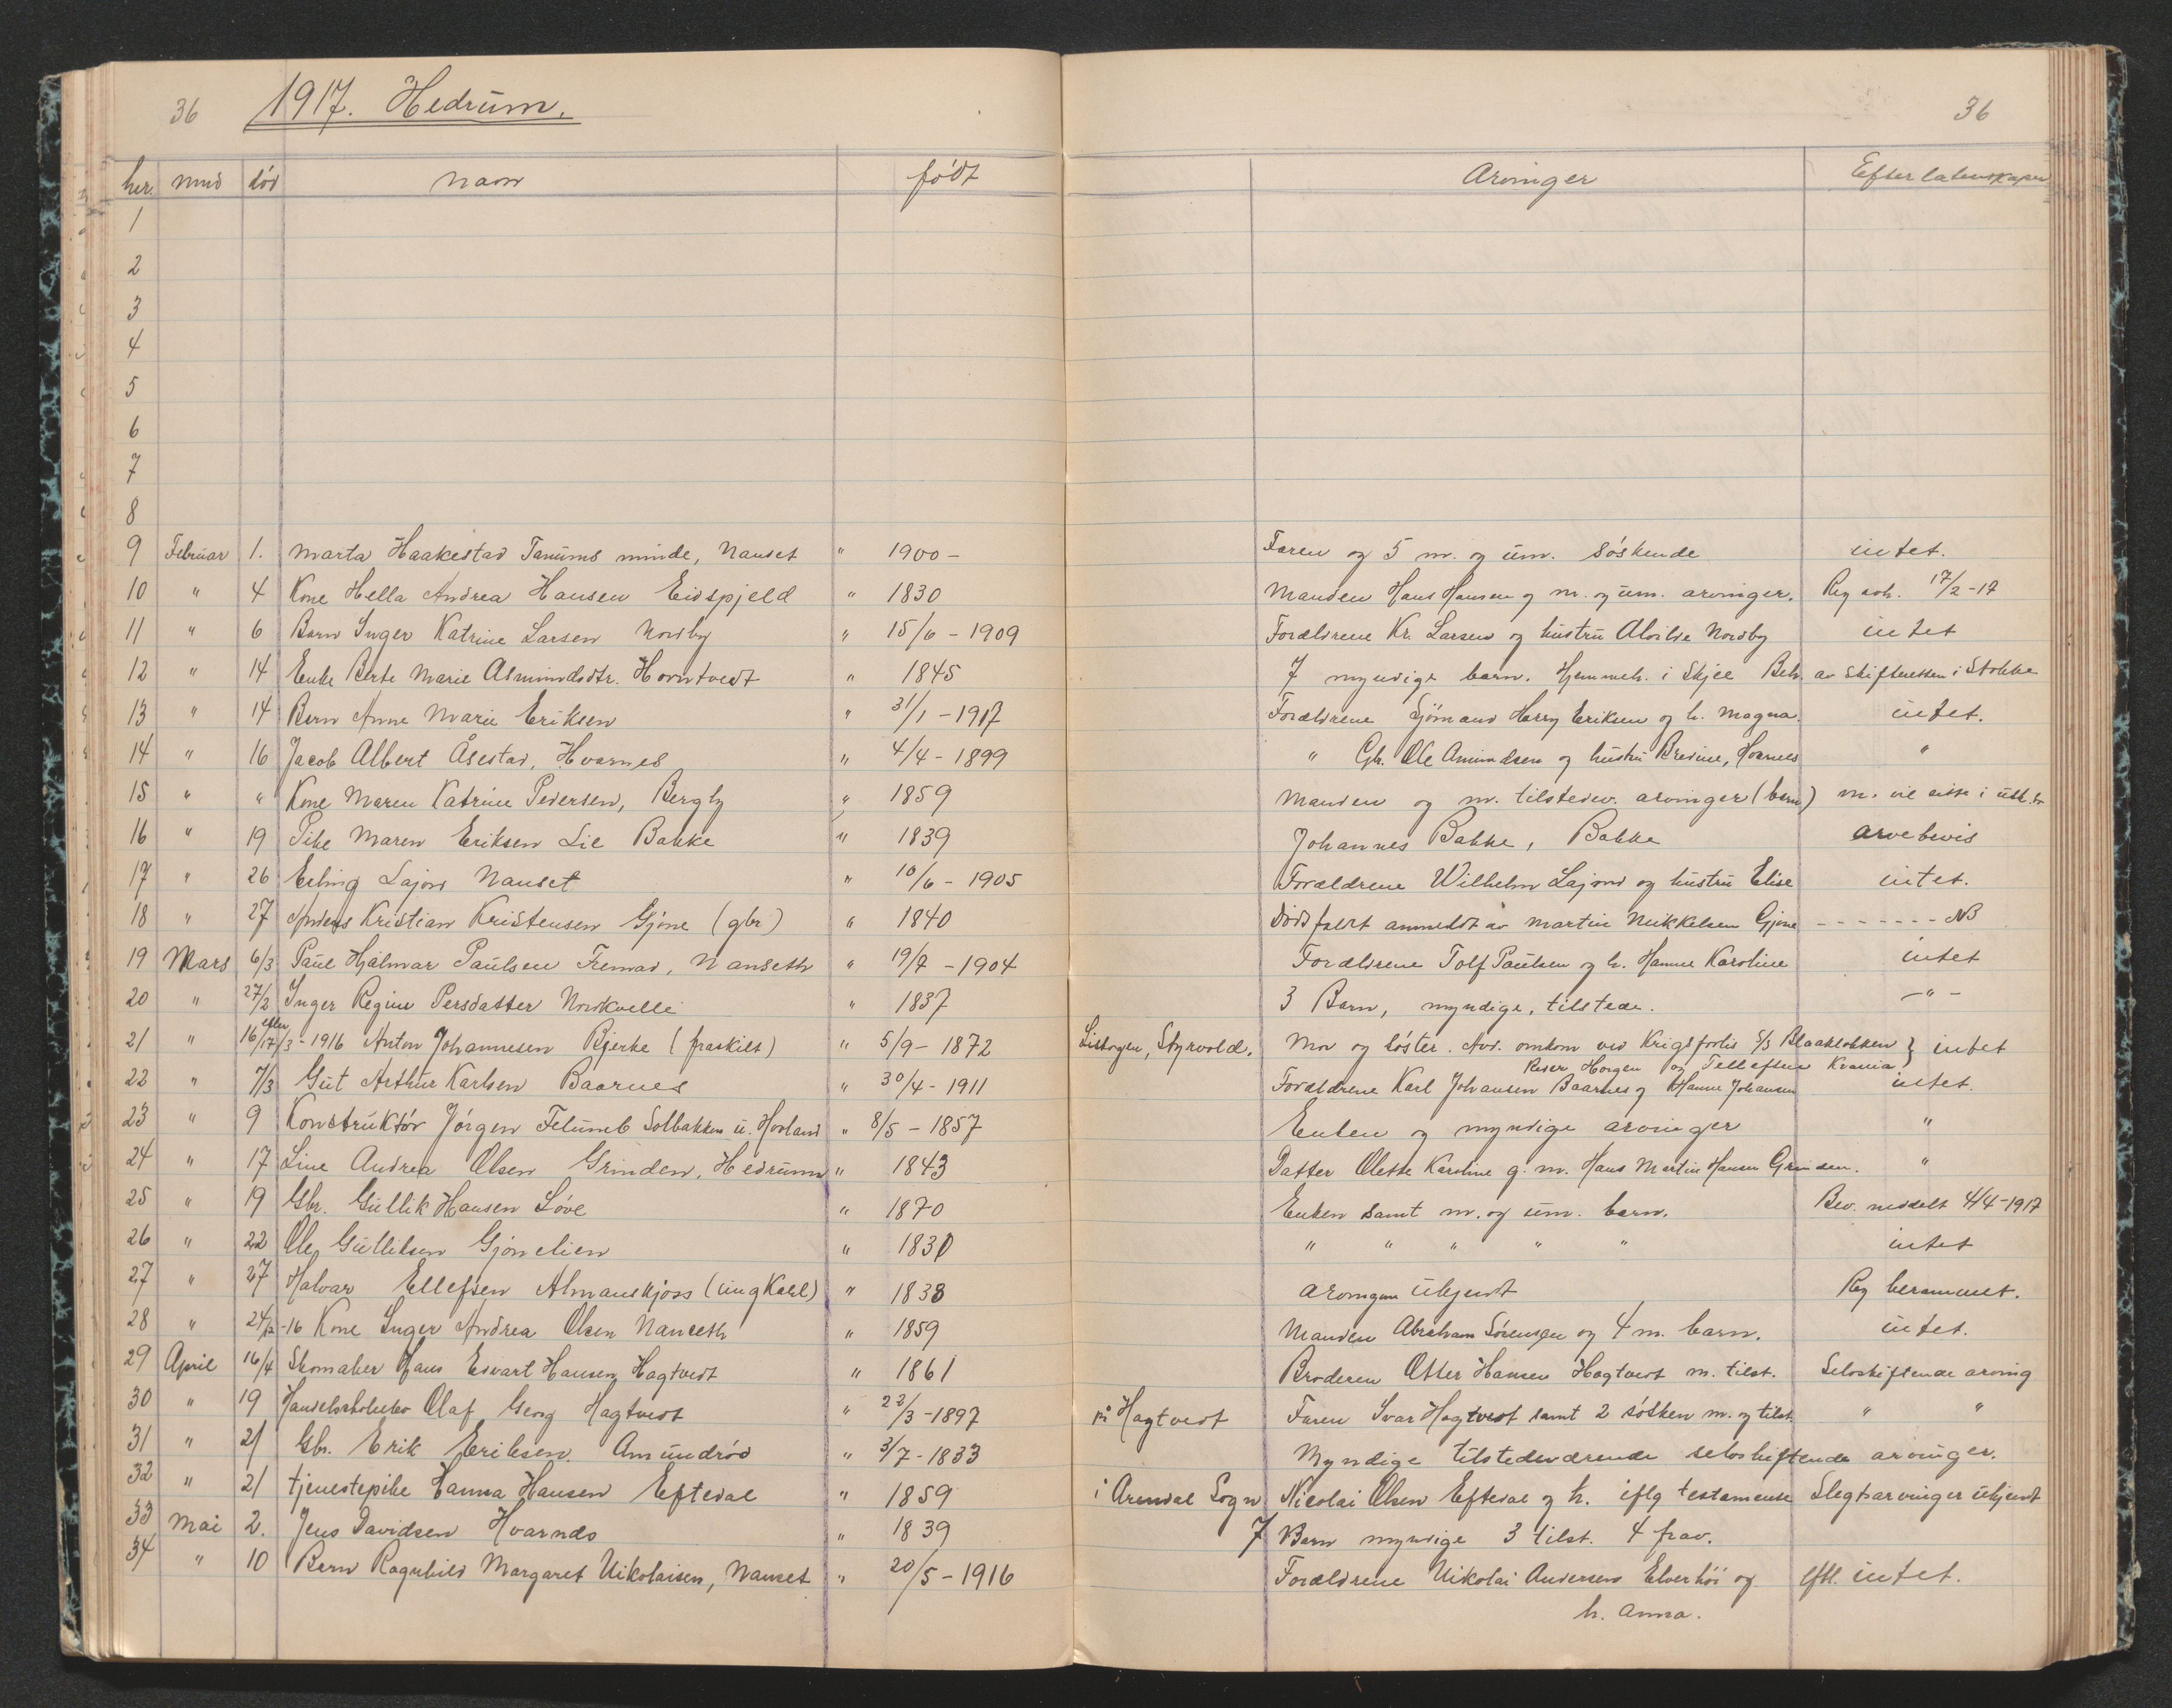 36 1917. Hedrum. 36
her. mnd död navn född Arvinger Efterlatenskaper
1
2
3
4
5
6
7
8
9 Februar 1. Marta Haakestad Tanums minde, Nanset " 1900 - Faren og 5 m. og um. söskende intet.
10 " 4 Kone Hella Andrea Hansen Eidspjeld " 1830 Manden Hans Hansen og m. og um. arvinger. Reg avh. 17/2-17
11 " 6 Barn Inger Katrine Larsen Nordby " 15/6 - 1909 Forældrene Kr. Larsen og hustru Alvilde Nordby intet
12 " 14 Enke Berte Marie Asmundsdtr. Horntvedt " 1845 7 myndige barn. Hjemmeh. i Skjee Beh. av Skifteretten i Stokke
13 " 14 Barn Anne Marie Eriksen " 31/1 - 1917 Forældrene Sjömand Harry Eriksen og h. Magna. intet.
14 " 16 Jacob Albert Åsestad, Hvarnes " 4/4 - 1899 " Gb. Ole Amundsen og hustru Bredine, Hvarnes "
15 " " Kone Maren Katrine Pedersen, Bergby " 1859 Manden og m. tilstedev. arvinger (barn) m. vil sitte i
16 " 19 Pike Maren Eriksen Lie Bakke " 1839 Johannes Bakke, Bakke arvebevis
17 " 26 Erling Lajord Nanset " 10/6 - 1905 Forældrene Wilhelm Lajord og hustru Elise intet.
18 " 27 Anders Kristian Kristensen Gjöne (gbr) " 1840 Dödsfaldt anmeldt av Martin Mikkelsen Gjöne - - - - - - - NB
19 Mars 6/3 Paul Hjalmar Paulsen Fremad, Nanseth " 19/7 - 1904 Forældrene Tolf Paulsen og h. Hanne Karoline intet
20 " 27/2 Inger Regine Persdatter Nordkvelle " 1837 3 Barn, myndige, tilstede. - " -
21 " 16 efter 17/3 - 1916 Anton Johannesen Bjerke (fraskilt) " 5/9 - 1872 Listogen, Styrvold. Mor og söster. Avd. omkom ved Krigsforlis 5/3 Blaaklokken } intet
Reser Horgen og Tellefsen Krania
22 " 7/3 Gut Arthur Karlsen Baarnes " 30/4 - 1911 Forældrene Karl Johansen Baarnes og Hanne Johansen intet.
23 " 9 Konstruktör Jörgen Felumb Solbakken u. Hovland " 8/5 - 1857 Enken og myndige arvinger "
24 " 17 Line Andrea Olsen Grinden, Hedrum " 1843 Datter Olette Karoline g. m. Hans Martin Hansen Grinden. "
25 " 19 Gbr. Gullik Hansen Löve " 1870 Enken samt m. og um. barn. Bev. meddelt 4/4-1917
26 " 22 Ole Gulliksen Gjönelien " 1830 " " " " " intet
27 " 27 Halvar Ellefsen Almanskjoss (ungkarl) " 1838 arvingene ukjendt Reg berammet.
28 " 24/12-16 Kone Inger Andrea Olsen Nanseth " 1859 Manden Abraham Sörensen og 4 m. barn. intet.
29 April 16/4 Skomaker Hans Edvart Hansen Hagtvedt " 1861 Broderen Otter Hansen Hagtvedt m. tilst. Selvskiftende arving
30 " 19 Handelsskoleelev Olaf Georg Hagtvedt " 22/3-1897 på Hagtvedt Faren Ivar Hagtvedt samt 2 sösken m. og tilst. " "
31 " 21 Gbr. Erik Eriksen Amundröd " 3/7 - 1833 Myndige tilstedeværende selvskiftende arvinger.
32 " 21 tjenestepike Hanna Hansen Eftedal " 1859 i Arendal Sogn Nicolai Olsen Eftedal og h. iflg testamente Slegtsarvinger ukjent
33 Mai 2. Jens Davidsen Hvarnes " 1839 7 Barn myndige 3 tilst. 4 frav.
34 " 10 Barn Ragnhild Margaret Nikolaisen, Nanset " 20/5 - 1916 Forældrene Nikolai Andersen Elverhöi og eftl. intet.
h. Anna.